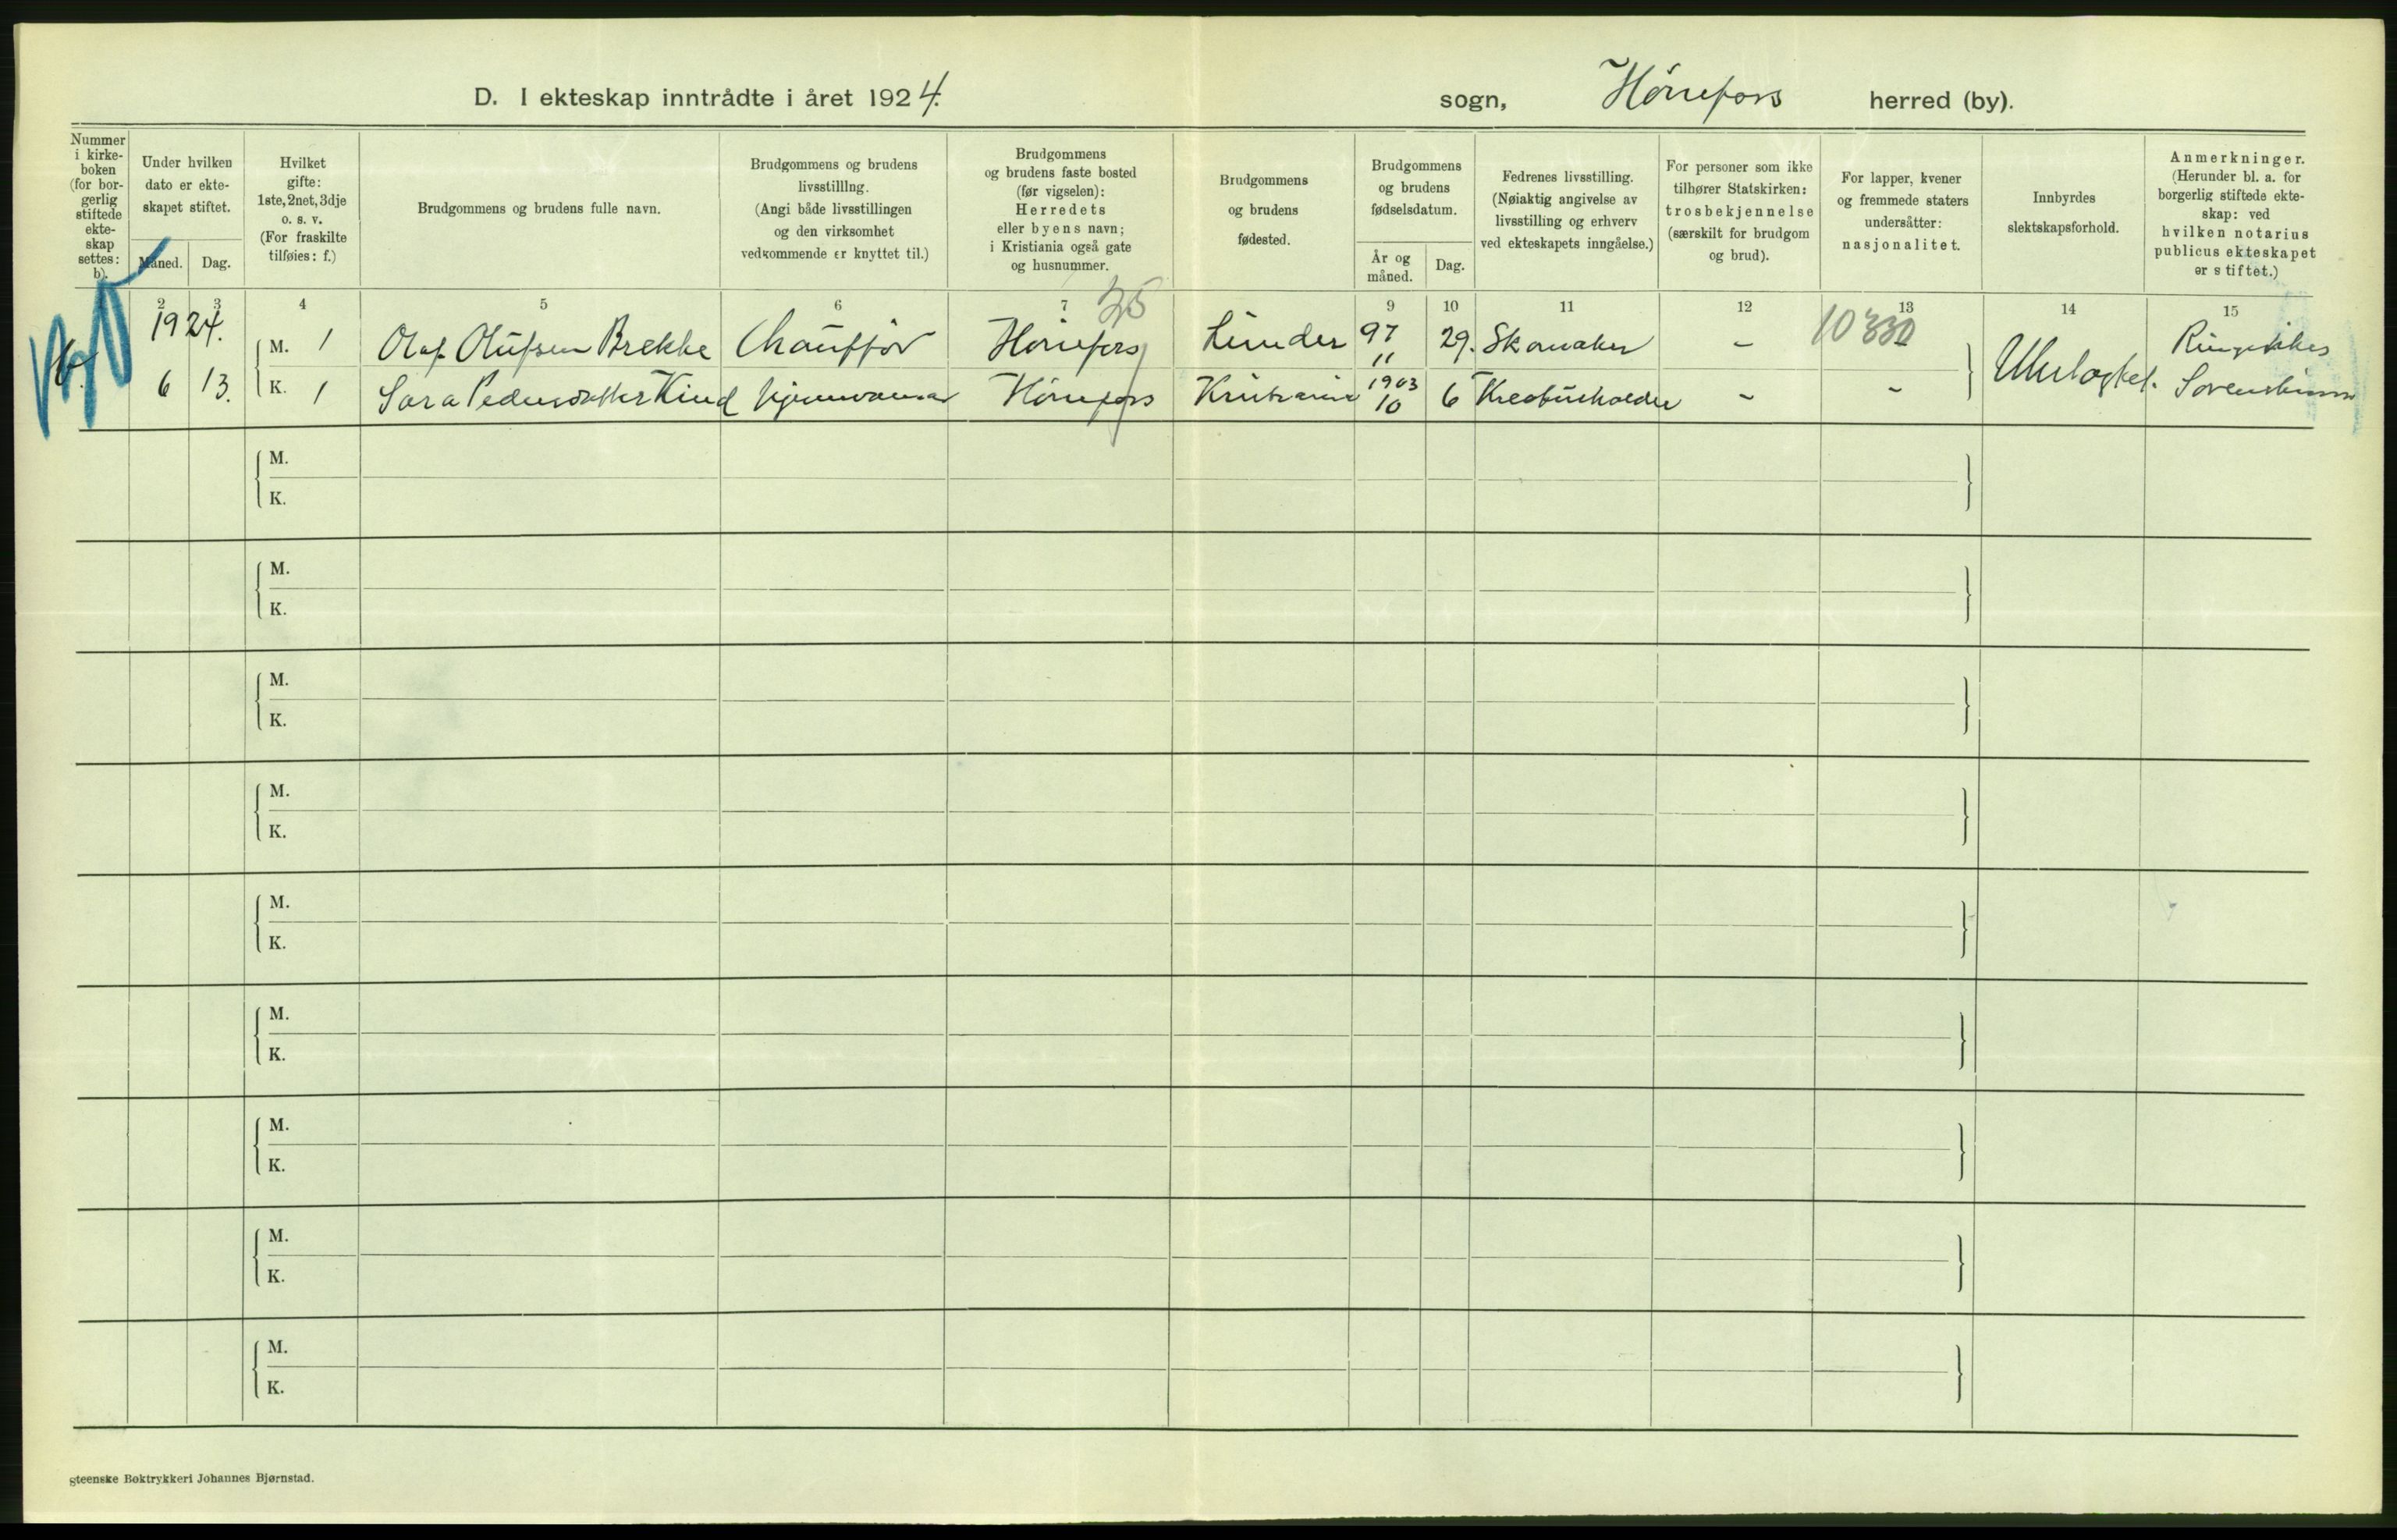 D. I ekteskap inntrådte i året 1924. sogn, Hönefoss herred (by).
Nummer
i kirke-
boken
(for bor-
gerlig
stiftede
ekte-
skap
settes:
b).
Under hvilken
dato er ekte-
skapet stiftet.
Måned. Dag.
Hvilket
gifte:
1ste, 2net, 3dje
o. s. v.
(For fraskilte
tilføies: f.)
Brudgommens og brudens fulle navn.
Brudgommens og brudens
livsstilling.
(Angi både livsstillingen
og den virksomhet
vedkommende er knyttet til.)
Brudgommens
og brudens faste bosted
(før vigselen):
Herredets
eller byens navn;
i Kristiania også gate
og husnummer.
Brudgommens
og brudens
fødested.
Brudgommens
og brudens
fødselsdatum.
År og
måned.
Dag.
Fedrenes livsstilling.
(Nøiaktig angivelse av
livsstilling og erhverv
ved ekteskapets inngåelse.)
For personer som ikke
tilhører Statskirken:
trosbekjennelse
(særskilt for brudgom
og brud).
For lapper, kvener
og fremmede staters
undersåtter:
nasjonalitet.
Innbyrdes
slektskapsforhold.
Anmerkninger.
(Herunder bl. a. for
borgerlig stiftede ekte-
skap: ved
hvilken notarius
publicus ekteskapet
er stiftet.)
2 3 4 5 6 7 9 10 11 12 13 14 15
25
10330
1924.
M. 1 Olaf Olufsen Brekke Chaufför Hönefoss Lunder 97 11 29. Skomaker - Ringerikes
b.
6 13. K. 1 Sara Pedersdatter Kind hjemmevær Hönefoss Kristiania 1903 10 6 - - Sorenskriver
M.
K.
M.
K.
M.
K.
M.
K.
M.
K.
M.
K.
M.
K.
M.
K.
M.
K.
gteenske Boktrykkeri Johannes Bjørnstad.